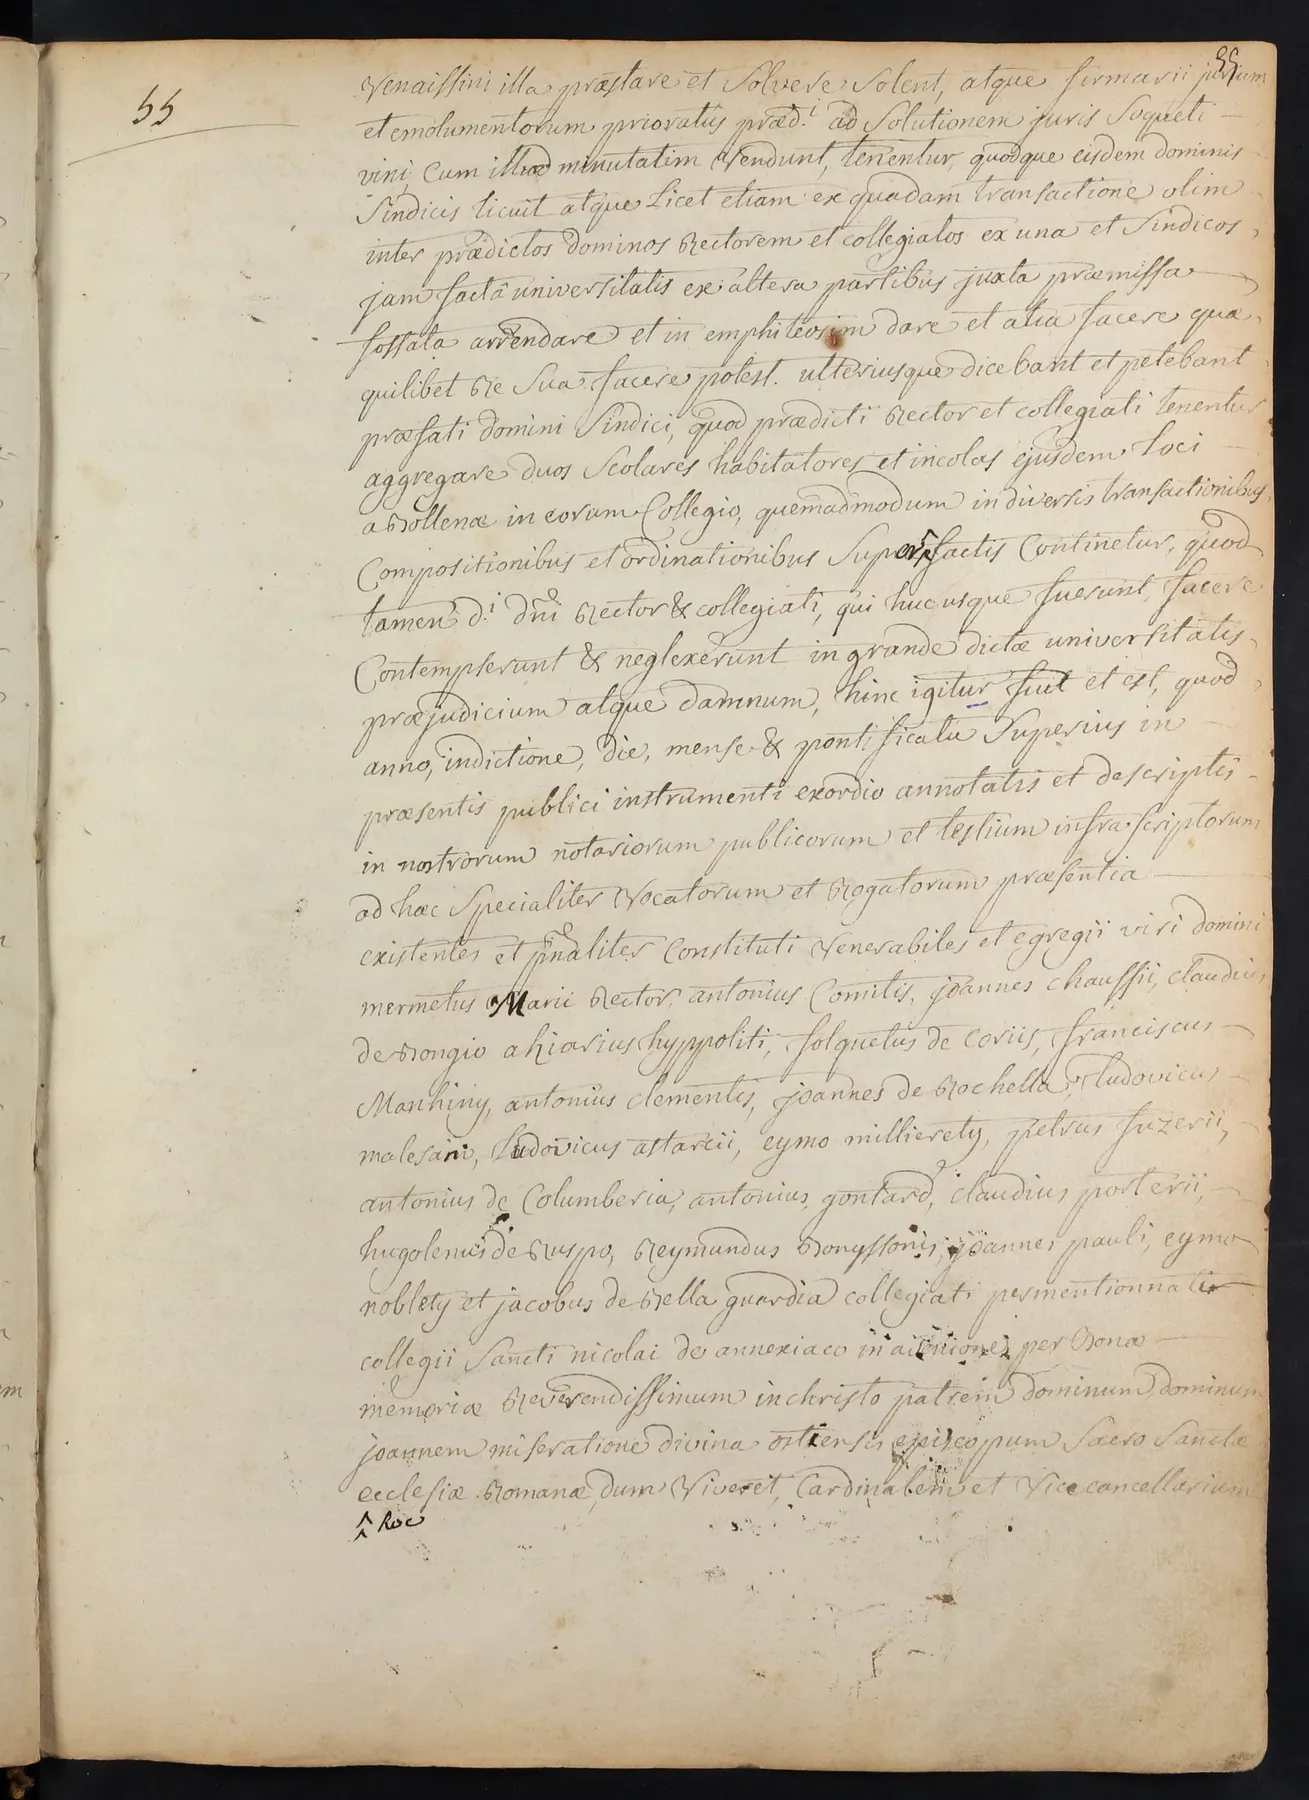 55
55
venaissini illa præstare et solvere solent, atque firmarii jurium
et emolumentorum prioratus præd.i ad solutionem juris soqueti
vini, cum illud minutatim vendunt, tenentur, quodque eisdem dominis
sindicis licuit atque licet etiam ex quadam transactione olim
inter prædictos dominos Rectorem et collegiatos ex una et sindicos
jam facta universitatis ex altera partibus juxta præmissa
fossata arrendare et in emphiteosim dare et alia facere quæ
quilibet Re sua facere potest. ulteriusque dicebant et petebant
præfati domini sindici, quod prædicti Rector et collegiati tenentur
aggregare duos scolares habitatores et incolas ejusdem loci
abollenæ in eorum Collegio, quemadmodum in diversis transactionibus
Compositionibus et ordinationibus super ^ factis continetur, quod
tamen d.i dni Rector & collegiati, qui hucusque fuerunt, facere
Contempserunt & neglexerunt in grande dictæ universitatis
præjudicium atque damnum, hinc igitur fuit et est, quod
anno, indictione, die, mense & pontificatu superius in
præsentis publici instrumenti exordio annotatis et descriptis
in nostrorum notariorum publicorum et testium infra scriptorum
ad hæc specialiter vocatorum et Rogatorum præsentia
existentes et pnaliter constituti venerabiles et egregii viri domini
mermetus Marii Rector, antonius Comitis, joannes chaussii, claudius
de Bongio akiarius hyppoliti, folquetus de coriis, franciscus
Manhiny, antonius clementis, joannes de Rochella, Ludovicus
malesani, Ludovicus astareii, eymo millierety, petrus fuzerii,
antonius de Columberia, antonius gontard, claudius porterii,
hugolenus de Ruspo, Reymundus Bonyssonis, joannes pauli, eymo
noblety et jacobus de Bella guardia collegiati permentionnati
collegii sancti nicolai de annexiaco in avenione, per Bonæ
memoriæ Reverendissimum in christo patrem dominum dominum
joannem miseratione divina ostiensis episcopum sacro sanctæ
ecclesiæ Romanæ, dum viveret, Cardinalem et vice cancellarium
^ hoc